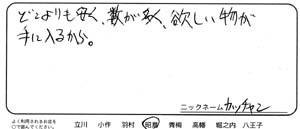 どこよりも安く、数が多く、欲しい物が
手に入るから。
ニックネーム カッチャン
よく利用されるお店を
○で囲んでください。 立川 小作 羽村 昭島 青梅 高幡 堀之内 八王子